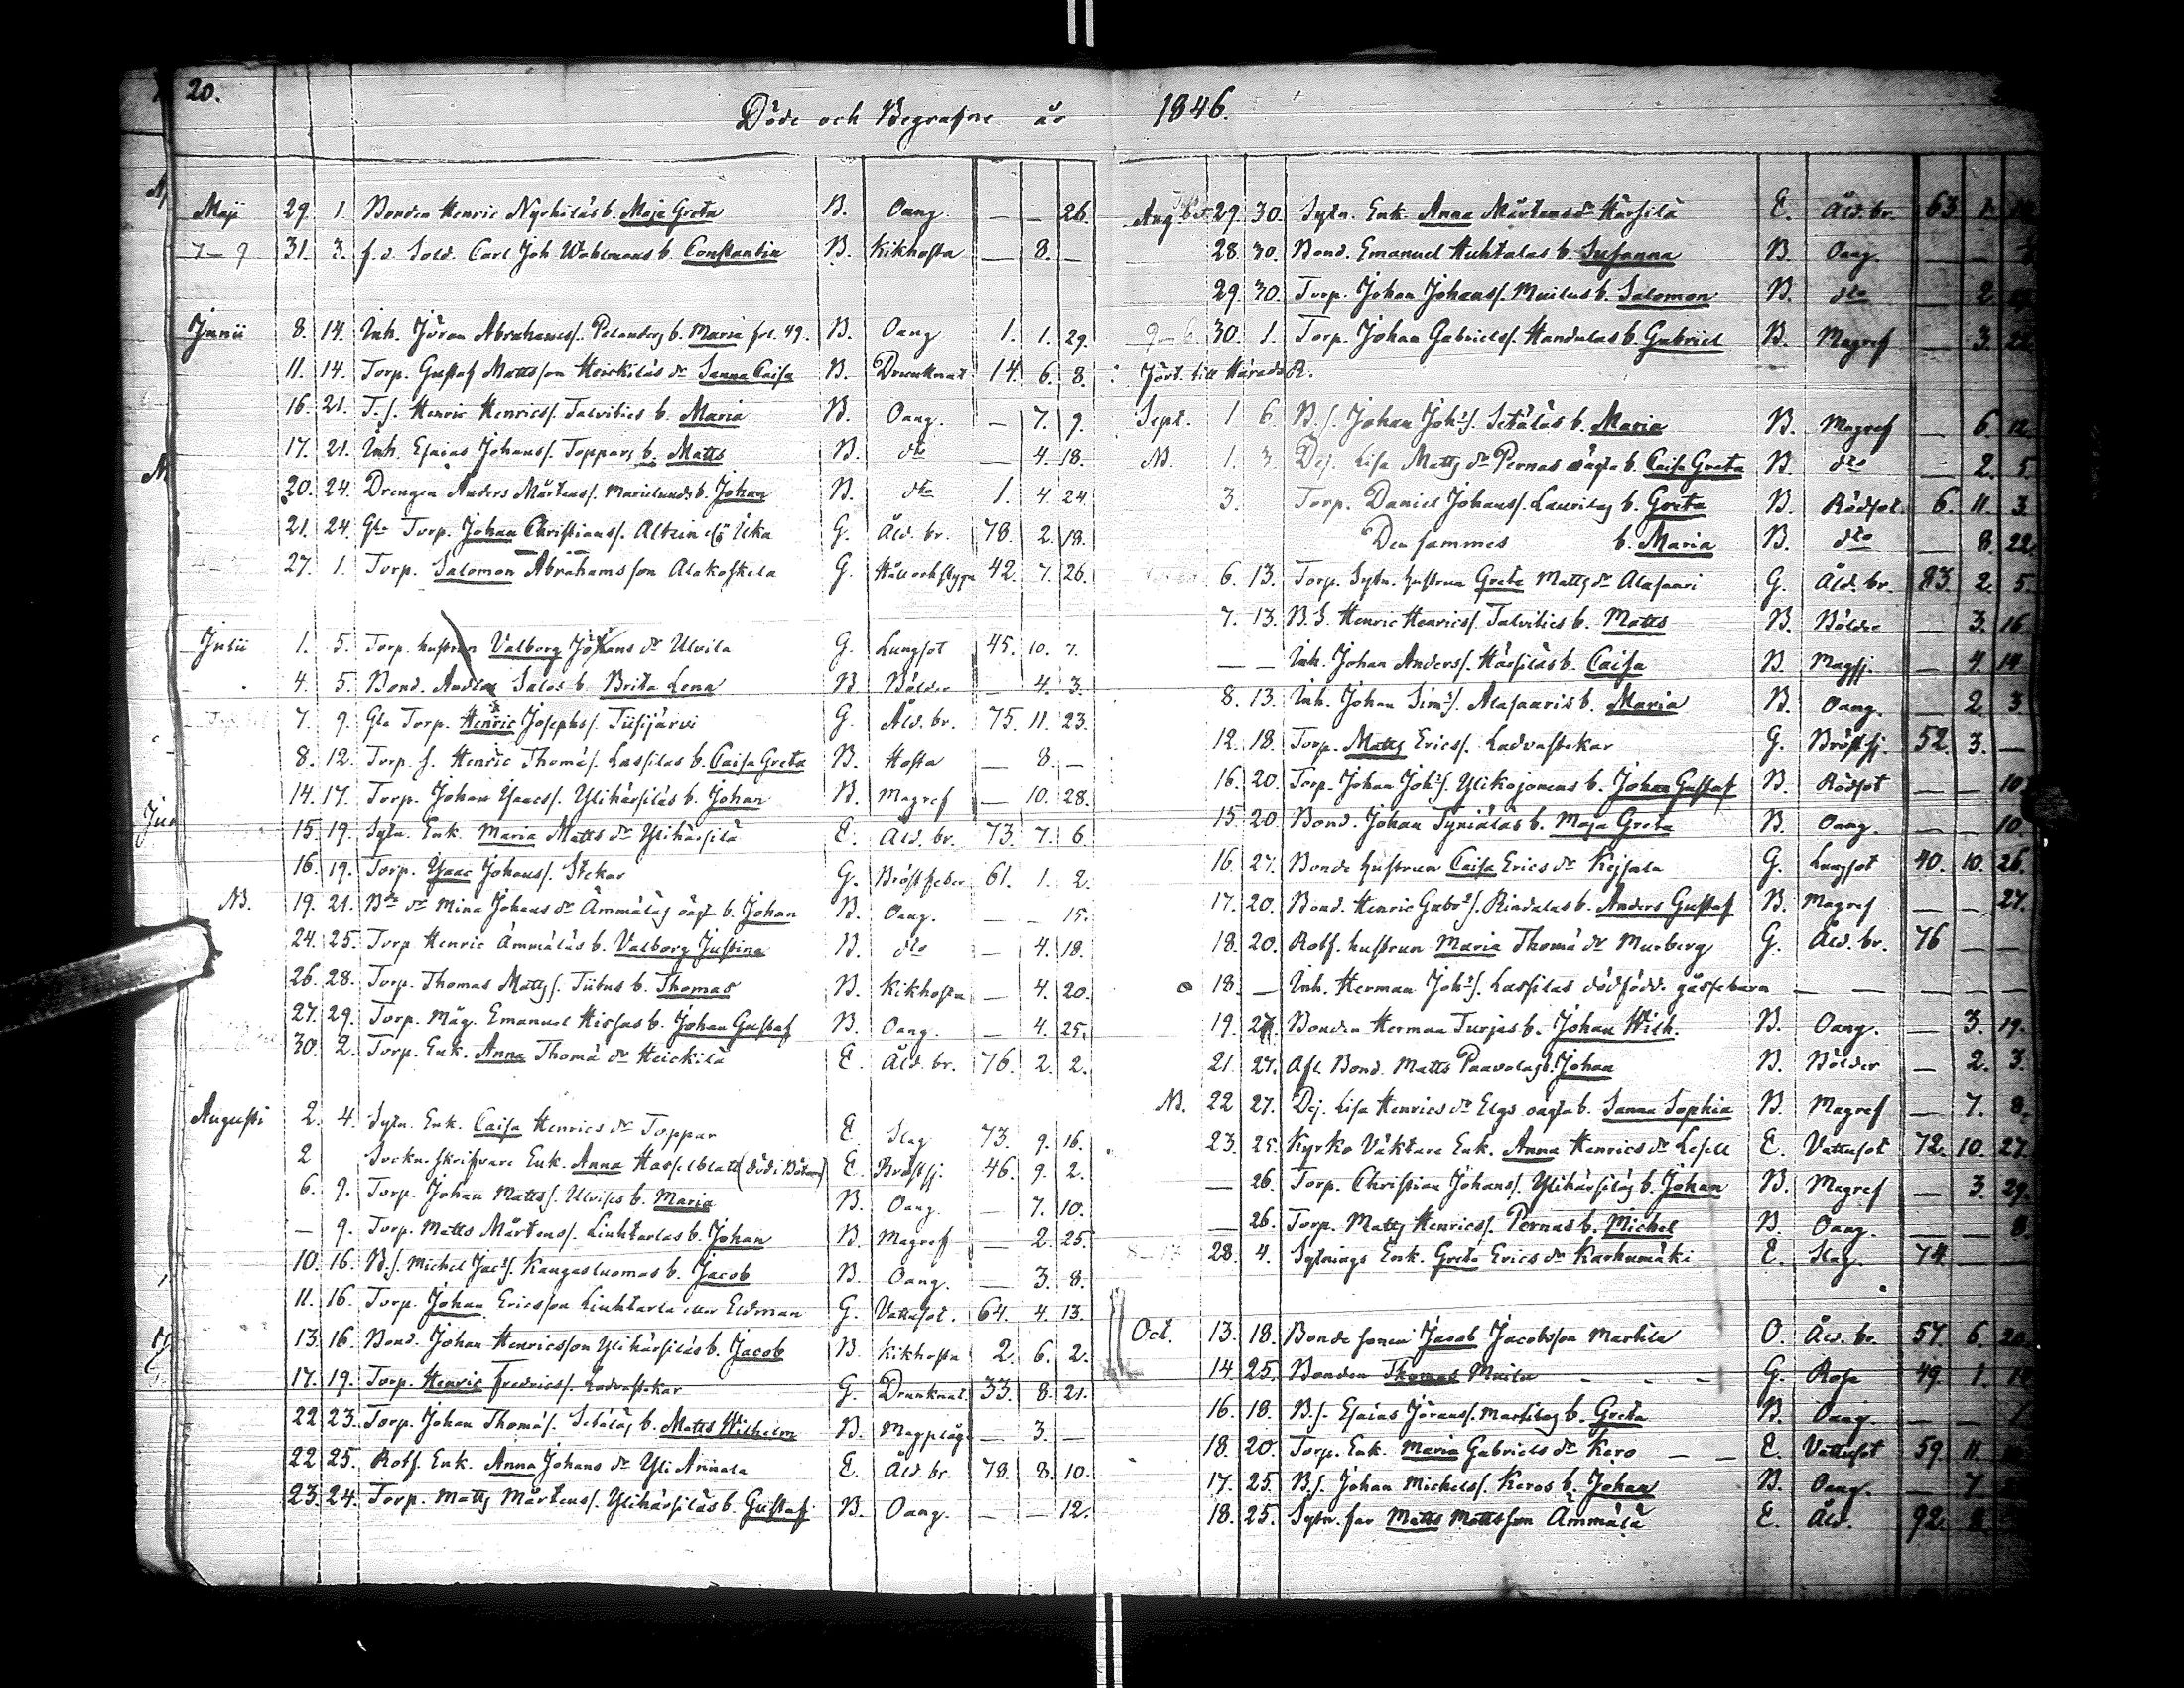 20.
Döde och Begrafne år 1846.
Maji 29. 1. Bonden Henric Nyrhiläs b. Maja Greta B. Oang. — — 26.
7–9 31. 3. f. d. Sold. Carl Joh Wahlmans b. Constantin B. Kikhosta — 8. —
Junii 8. 14. Inh. Jöran Abrahamss. Pelanders b. Maria fol. 49. B. Oang 1. 1. 29.
11. 14. Torp. Gustaf Mattsson Heickiläs dr Sanna Caisa B. Drunknat 14. 6. 8.
16. 21. T.s. Henric Henricss. Talvities b. Maria B. Oang. — 7. 9.
17. 21. Inh. Esaias Johanss. Toppars b. Matts B. dto — 4. 18.
20. 24. Drengen Anders Mårtenss. Marielunds b. Johan B. dto 1. 4. 24
21. 24. Gla Torp. Johan Christianss. Altzin Uka G. Åld. br. 78. 2. 18.
27. 1. Torp. Salomon Abrahamsson Alakoskela G. Håll och stygn 42. 7. 26.
Julii 1. 5. Torp. hustrun Valborg Johans dr Ulvila G. Lungsot 45. 10. 7.
4. 5. Bond. Salos b. Brita Lena B Bölder — 4. 3.
7. 9. Gla Torp. Henric Josephs. Tiisijärvi G. Åld. br. 75. 11. 23.
8. 12. Torp. s. Henric Thomæs. Lassilas b. Caisa Greta B. Hosta — 8. —
14. 17. Torp. Johan Isaacs. Ylihärsiläs b. Johan B. Magref — 10. 28.
15 19. Sytn. Enk. Maria Matts dr Ylihärsilä E. Åld. br. 73. 7. 6
16. 19. Torp. Isaac Johans. Stekar G. Bröstfeber 61. 1. 2.
NB. 19. 21. Bde dr Mina Johans dr Ämmäläs oägta b. Johan B. Oang. — — 15.
24. 25. Torp Henric Ämmäläs b. Valborg Justina B. dto — 4. 18.
26. 28. Torp. Thomas Matts s. Tiitus b. Thomas B. Kikhosta — 4. 20.
27. 29. Torp. Måg. Emanuel Hissas b. Johan Gustaf B. Oang. — 4. 25.
30. 2. Torp. Enk. Anna Thomæ dr Heickilä E. Åld. br. 76. 2. 2.
Augusti 2. 4. Sytn. Enk. Caisa Henrics dr Toppar E. Slag 73. 9. 16.
2 Sockn. skrifvare Enk. Anna Hasselblatt E. Bröstsj. 46. 9. 2.
6. 9. Torp. Johan Matts s. Ulvises b. Maria B. Oang. — 7. 10.
— 9. Torp. Matts Mårtens s. Liuhtarlas b. Johan B. Magref — 2. 25.
10. 16. B.s. Michel Jacs. Kangasluomas b. Jacob B. Oang. — 3. 8.
11. 16. Torp. Johan Ericsson Liuhtarla eller Eldman G. Vattusot. 64. 4. 13.
13. 16. Bond. Johan Henricsson Ylihärsiläs b. Jacob B. Kikhosta 2. 6. 2.
17. 19. Torp. Henric Fredrics. Ladvastekar G. Drunknat. 33. 8. 21.
22 23. Torp. Johan Thomæs. Setäläs b. Matts Wilhelm B. Magplåga — 3. —
22 25. Rotf. Enk. Anna Johans dr Yli Annala E. Åld. br. 78. 8. 10.
23. 24. Torp. Matts Mårtens s. Ylihärsiläs b. Gustaf B. Oang. — — 12.
Augusti 29. 30. Sytn. Enk. Anna Mårtens dr Härsilä E. Åld. br. 63 1.
28. 30. Bond. Emanuel Huhtalas b. Susanna B. Oang. — —
29 30. Torp. Johan Johans s. Muilus b. Salomon B. dto — 2.
9–6 30. 1. Torp. Johan Gabriels s. Handulas b. Gabriel B. Magref — 3. 22.
Fört. till Härads R.
Sept. 1 6. B.s. Johan Johs. Setäläs b. Maria B. Magref — 6. 12.
NB. 1. 3. Dej. Lisa Matts dr Pernas oägta b. Caisa Greta B. dto — 2. 5.
3. Torp. Daniel Johans s. Laurilas b. Greta B. Rödsot. 6. 11. 3.
Den sammes b. Maria B. dto — 8. 22.
6. 13. Torp. Sytn. hustrun Greta Matts dr Alasaari G. Åld. br. 83. 2. 5.
7. 13. B.S. Henric Henrics. Talvities b. Matts B. Bölder — 3. 16.
— — Inh. Johan Anders s. Härsiläs b. Caisa B. Magsj. — 4. 14
8. 13. Inh. Johan Sims. Alasaaris b. Maria B. Oang. — 2. 3.
12. 18. Torp. Matts Erics s. Ladvastekar G. Bröstsj. 52. 3. —
16. 20. Torp. Johan Johs. Ylikojomas b. Johan Gustaf B. Rödsot — — 10
15. 20. Bond. Johan Tyniäläs b. Maja Greta B. Oang. — — 10.
16 27. Bonde hustrun Caisa Erics dr Kejsala G. Lungsot 40. 10. 26.
17. 20. Bond. Henric Gabrs. Rindalas b. Anders Gustaf B. Magref — — 27.
18. 20. Rotf. hustrun Maria Thomæ dr Murberg G. Åld. br. 76 — —
18. — Inh. Herman Johs. Lassilas dödfödde gåssebarn — — — — —
19. 27. Bonden Herman Turjas b. Johan Wilh. B. Oang. — 3. 19.
21. 27. Afl. Bond. Matts Paavolas b. Johan B. Bölder — 2. 3.
NB. 22 27. Dej. Lisa Henrics dr Elgs oägta b. Sanna Sophia B. Magref — 7. 8.
23. 25. Kyrko Väktare Enk. Anna Henrics dr Lesell E. Vattusot 72. 10. 27.
— 26. Torp. Christian Johans s. Ylihärsiläs b. Johan B. Magref — 3. 29.
— 26. Torp. Matts Henrics s. Pernas b. Michel B. Oang. — — 8.
28. 4. Sytnings Enk. Greta Erics dr Karhumäki E. Slag. 74 — —
Oct. 13. 18. Bonde sonen Jacob Jacobsson Martila O. Åld. br. 57. 6 20.
14. 25. Bonden Thomas Muilu - - - G. Rosa 49. 1.
16. 18. B.s. Esaias Jörans s. Marttilas b. Greta B. Oang — —
18. 20. Torp. Enk. Maria Gabriels dr Kero — — E. Vattusot 59. 11.
17. 25. B.s. Johan Michels s. Keros b. Johan B. Oang. — 7
18. 25. Sytn. far Matts Mattsson Ämmälä E. Åld. 92.